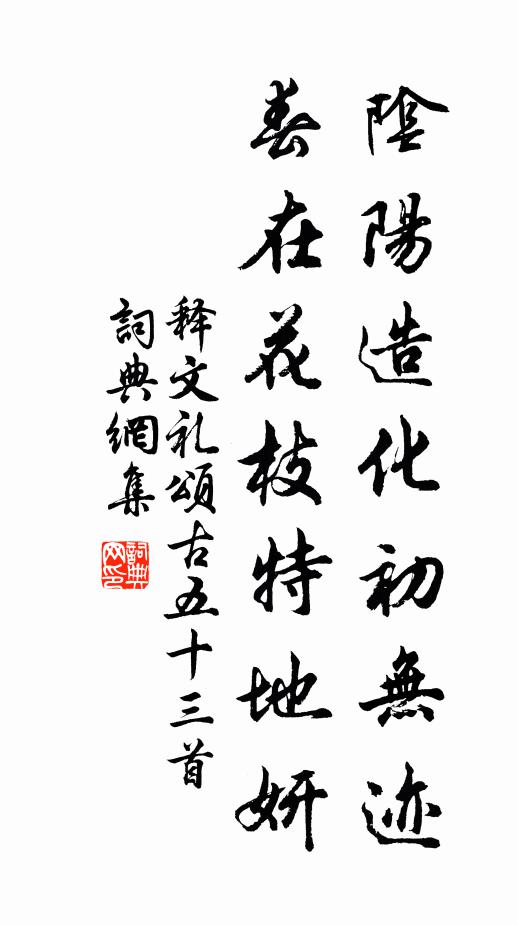 陰陽造化初無迹
春在花枝特地妍
释文礼頌古五十三首
詞典網集
詞典网印